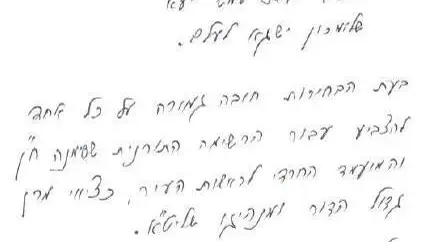 שלומכון ישגא לעלם.
בעת הבחירות חובה גמורה על כל אחד
להצביע עבור הרשימה התורנית שסימנה ח"ן
והמועמד החרדי לראשות העיר, כציווי מרן
גדול הדור ומנהיגו שליט"א.